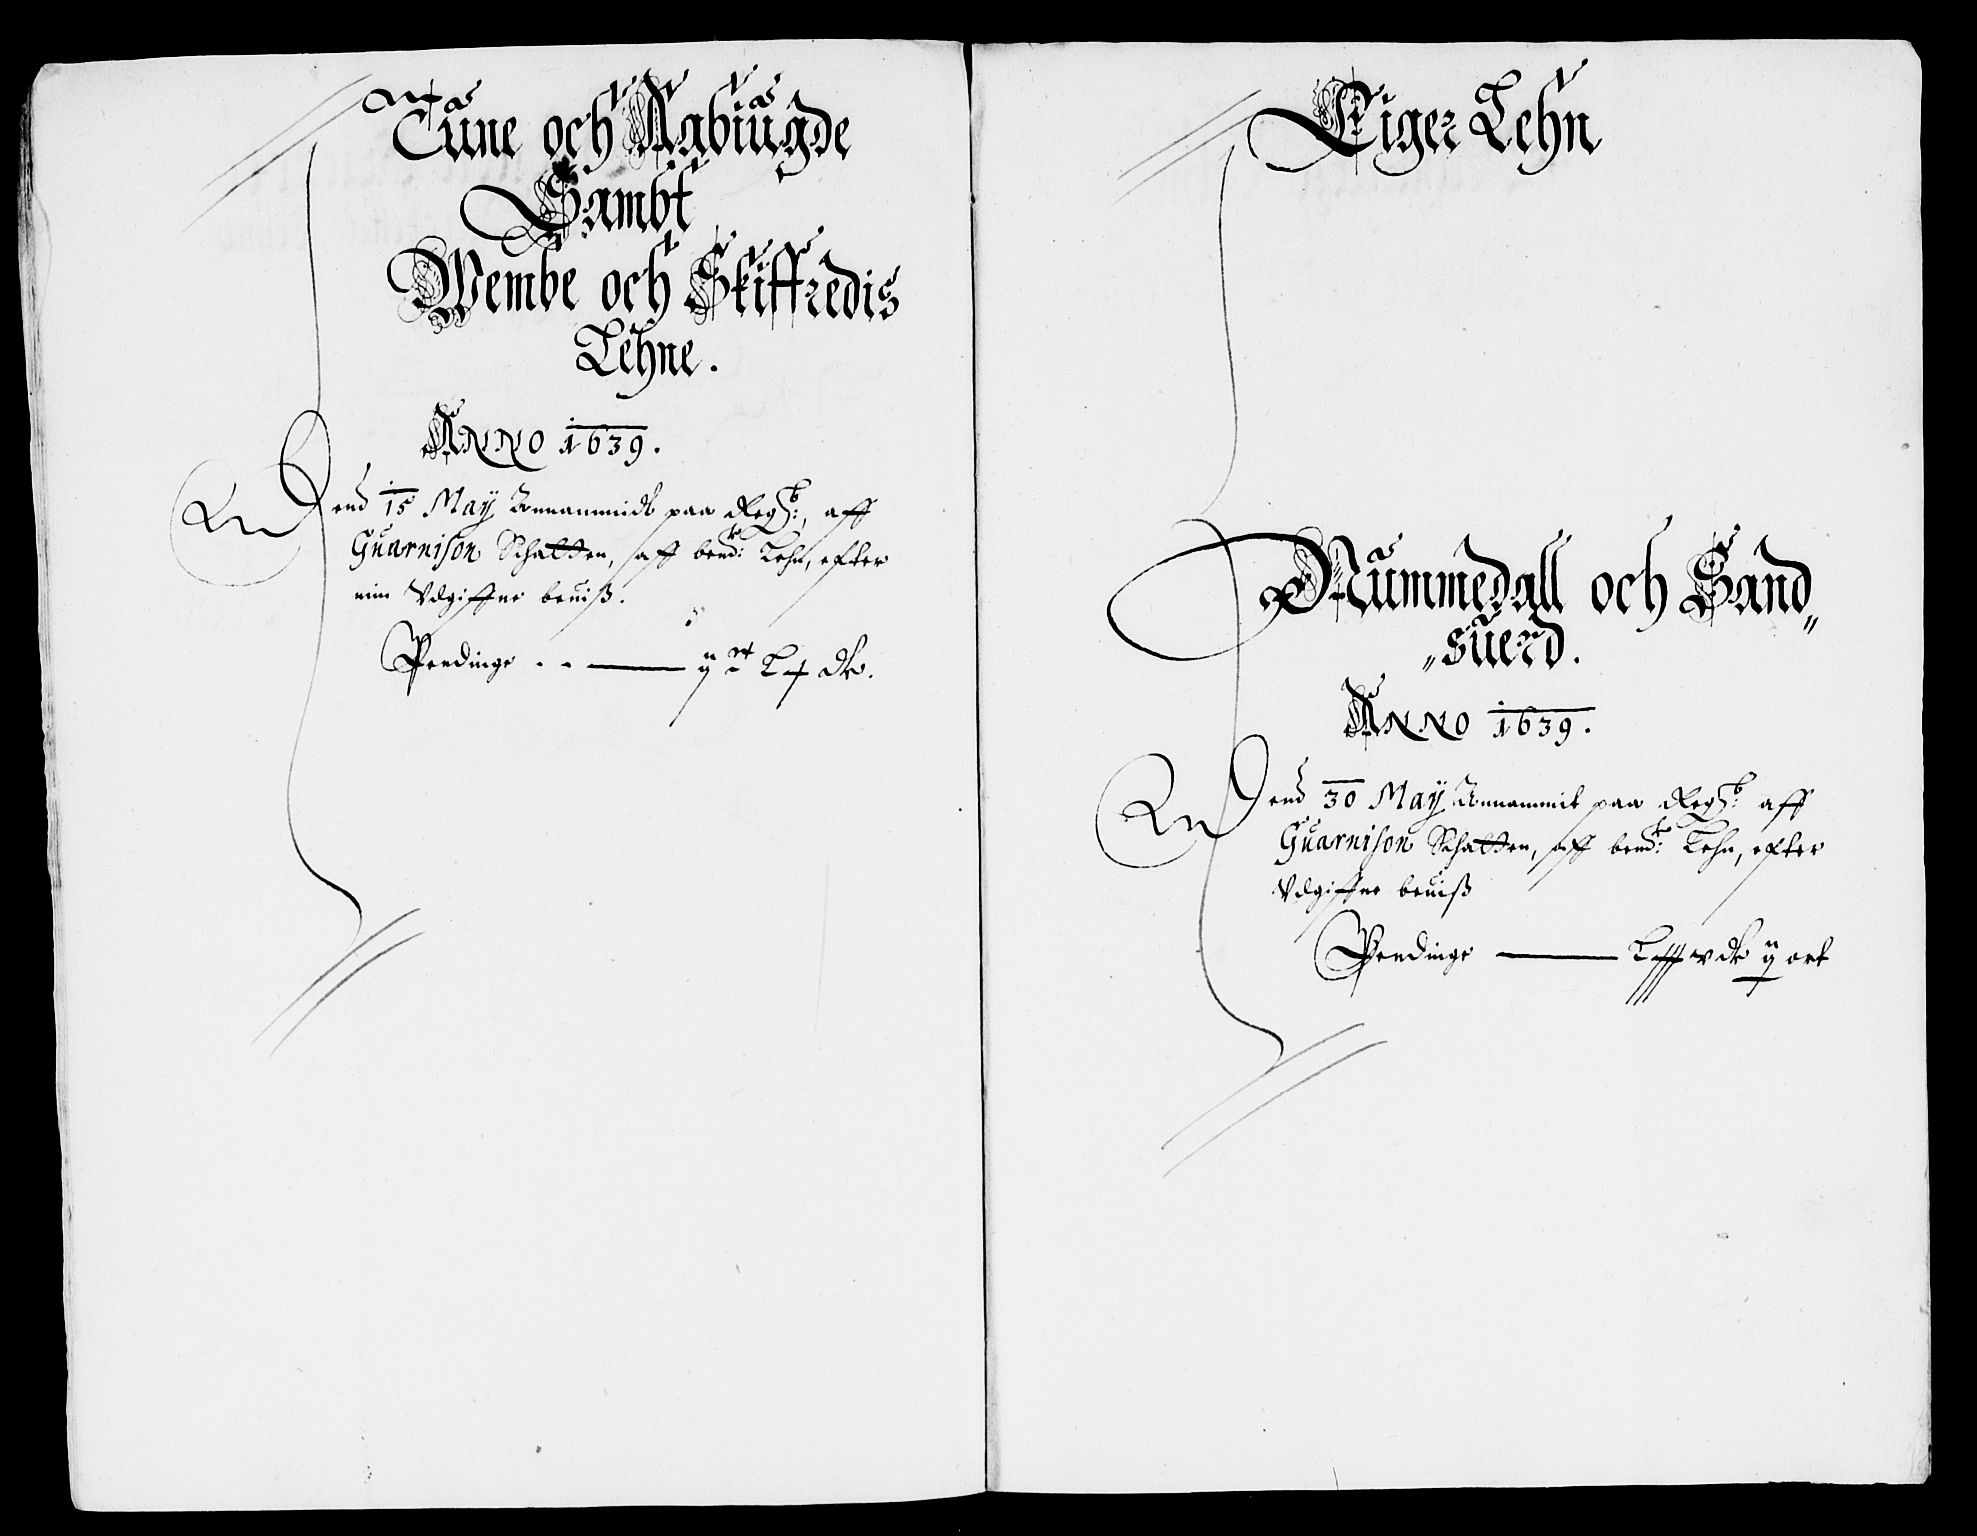 Tune och Aabiugde
Sambt
Wembe och Skiffredis
Lehne.
ANNO 1639.
Dend 15 May Annammidt paa Regsb:, aff
Guarnison Schatten, aff bemdte: Lehn, efter
min Vdgiffne beuiß.
Pendinge - - — ij
Eiger Lehn
Nummedall och Sand„
„suerd.
ANNO 1639.
Dend 30 May Annammit paa Regsb: aff
Guarnison Schatten, aff bemdte: Lehn, efter
Vdgiffne beuiß
Pendinge — Lxxxv dr ij ort